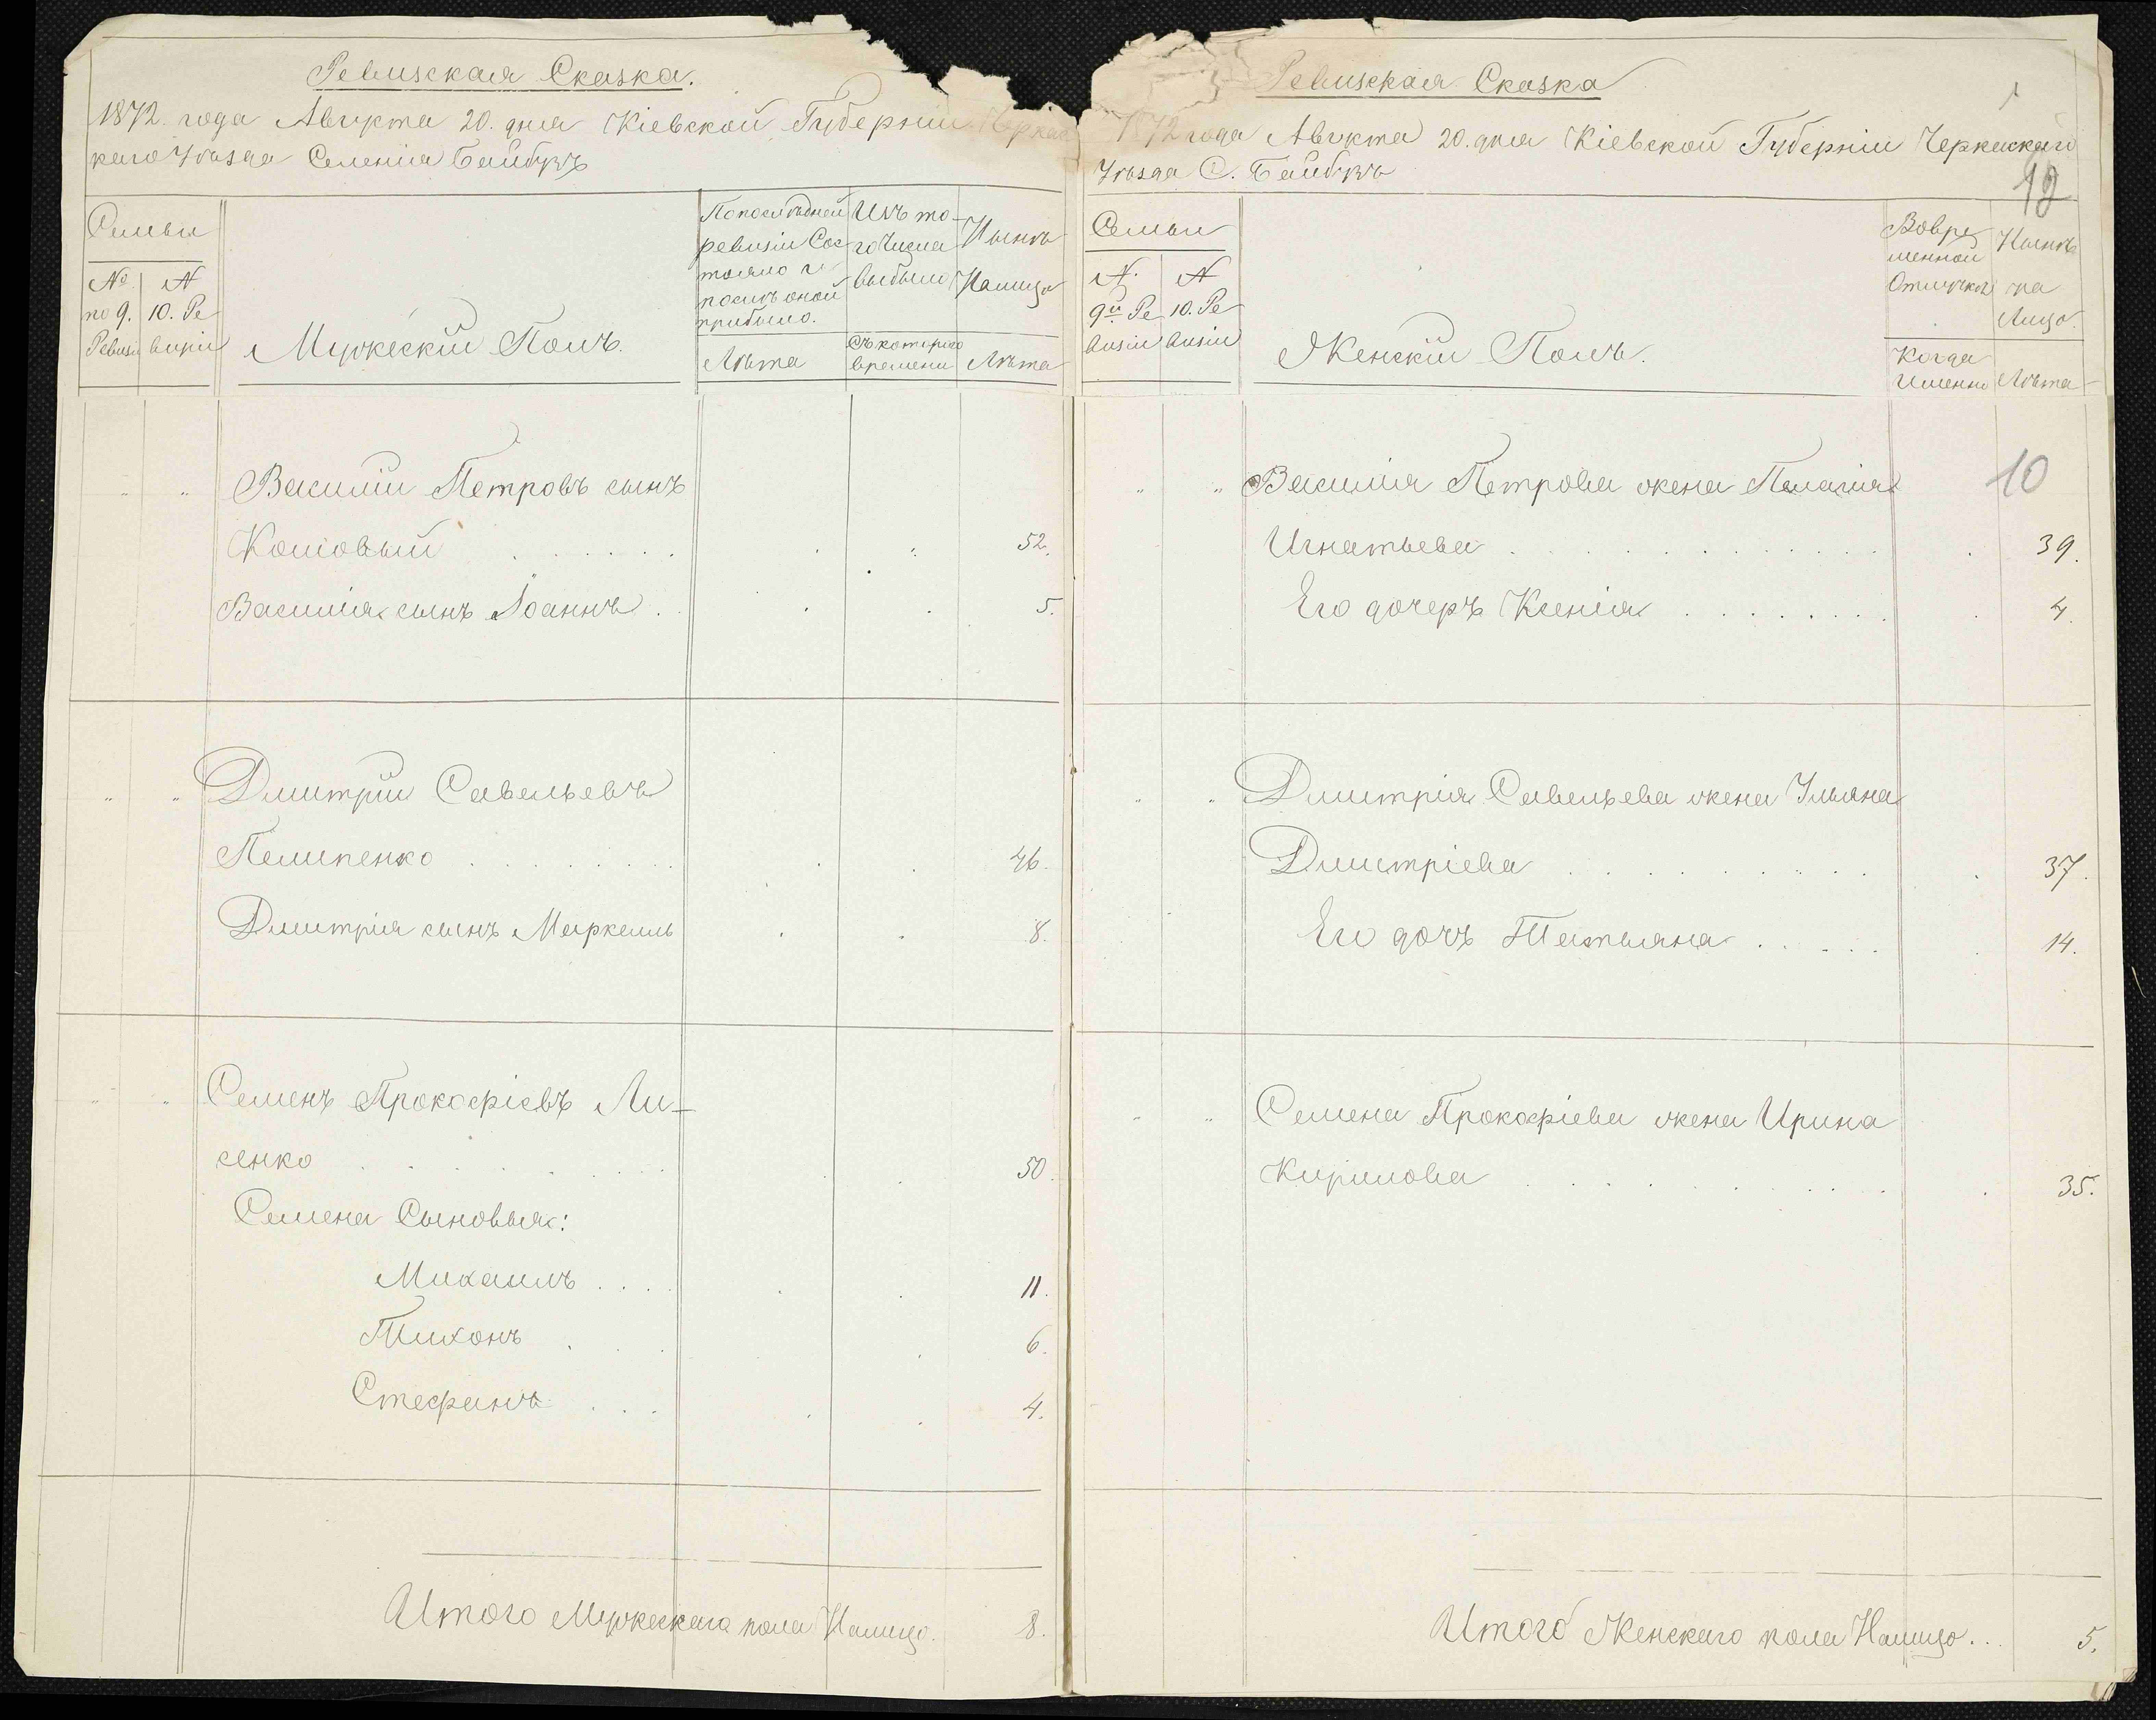 Ревизская Сказка.
1872. года Августа 20. дня Кіевской Губерніи Черкас
скаго Уѣзда Селенія Байбузъ
Семьи
№ по 9. Ревизіи
№ 10. Ревизіи
Мужескій Полъ.
По последней
ревизіи Сос
тояло и
послѣ оной
прибыло.
Лѣта
Изъ то-
го Числа
выбыло
Съ котораго
времени
Нынѣ
Налицо
Лѣта
" " Василій Петровъ сынъ
Кошовый . . . . . . 52.
Василія сынъ Іоаннъ . . 5.
" " Дмитрій Савельевъ
Пелипенко . . . . . . 46.
Дмитрія сынъ Маркелъ 8.
" " Семенъ Прокофіевъ Ли-
сенко . . . . . . 50.
Семена Сыновья:
Михаилъ . . . 11.
Тихонъ . . . 6.
Стефанъ . . . 4.
Итого Мужескаго пола Налицо. 8.
Ревизская Сказка
1872 года Августа 20. дня Кіевской Губерніи Черкаскаго
Уѣзда С. Байбузъ
12
Семьи
№ 9й Ревизіи
№ 10. Ревизіи
Женскій Полъ.
Вовре
менной
Отлучкѣ
Когда
Именно
Нынѣ
на
Лицо.
Лѣта
10
" " Василія Петрова жена Пелагія
Игнатьева . . . . . . 39.
Его дочеръ Ксенія . . . . . . 4.
" " Дмитрія Савельева жена Ульяна
Дмитріева . . . . . . 37.
Его дочъ Татьяна . . . . . 14.
" " Семена Прокофіева жена Ирина
Кирилова . . . . . . 35.
Итого Женскаго пола Налицо... 5.